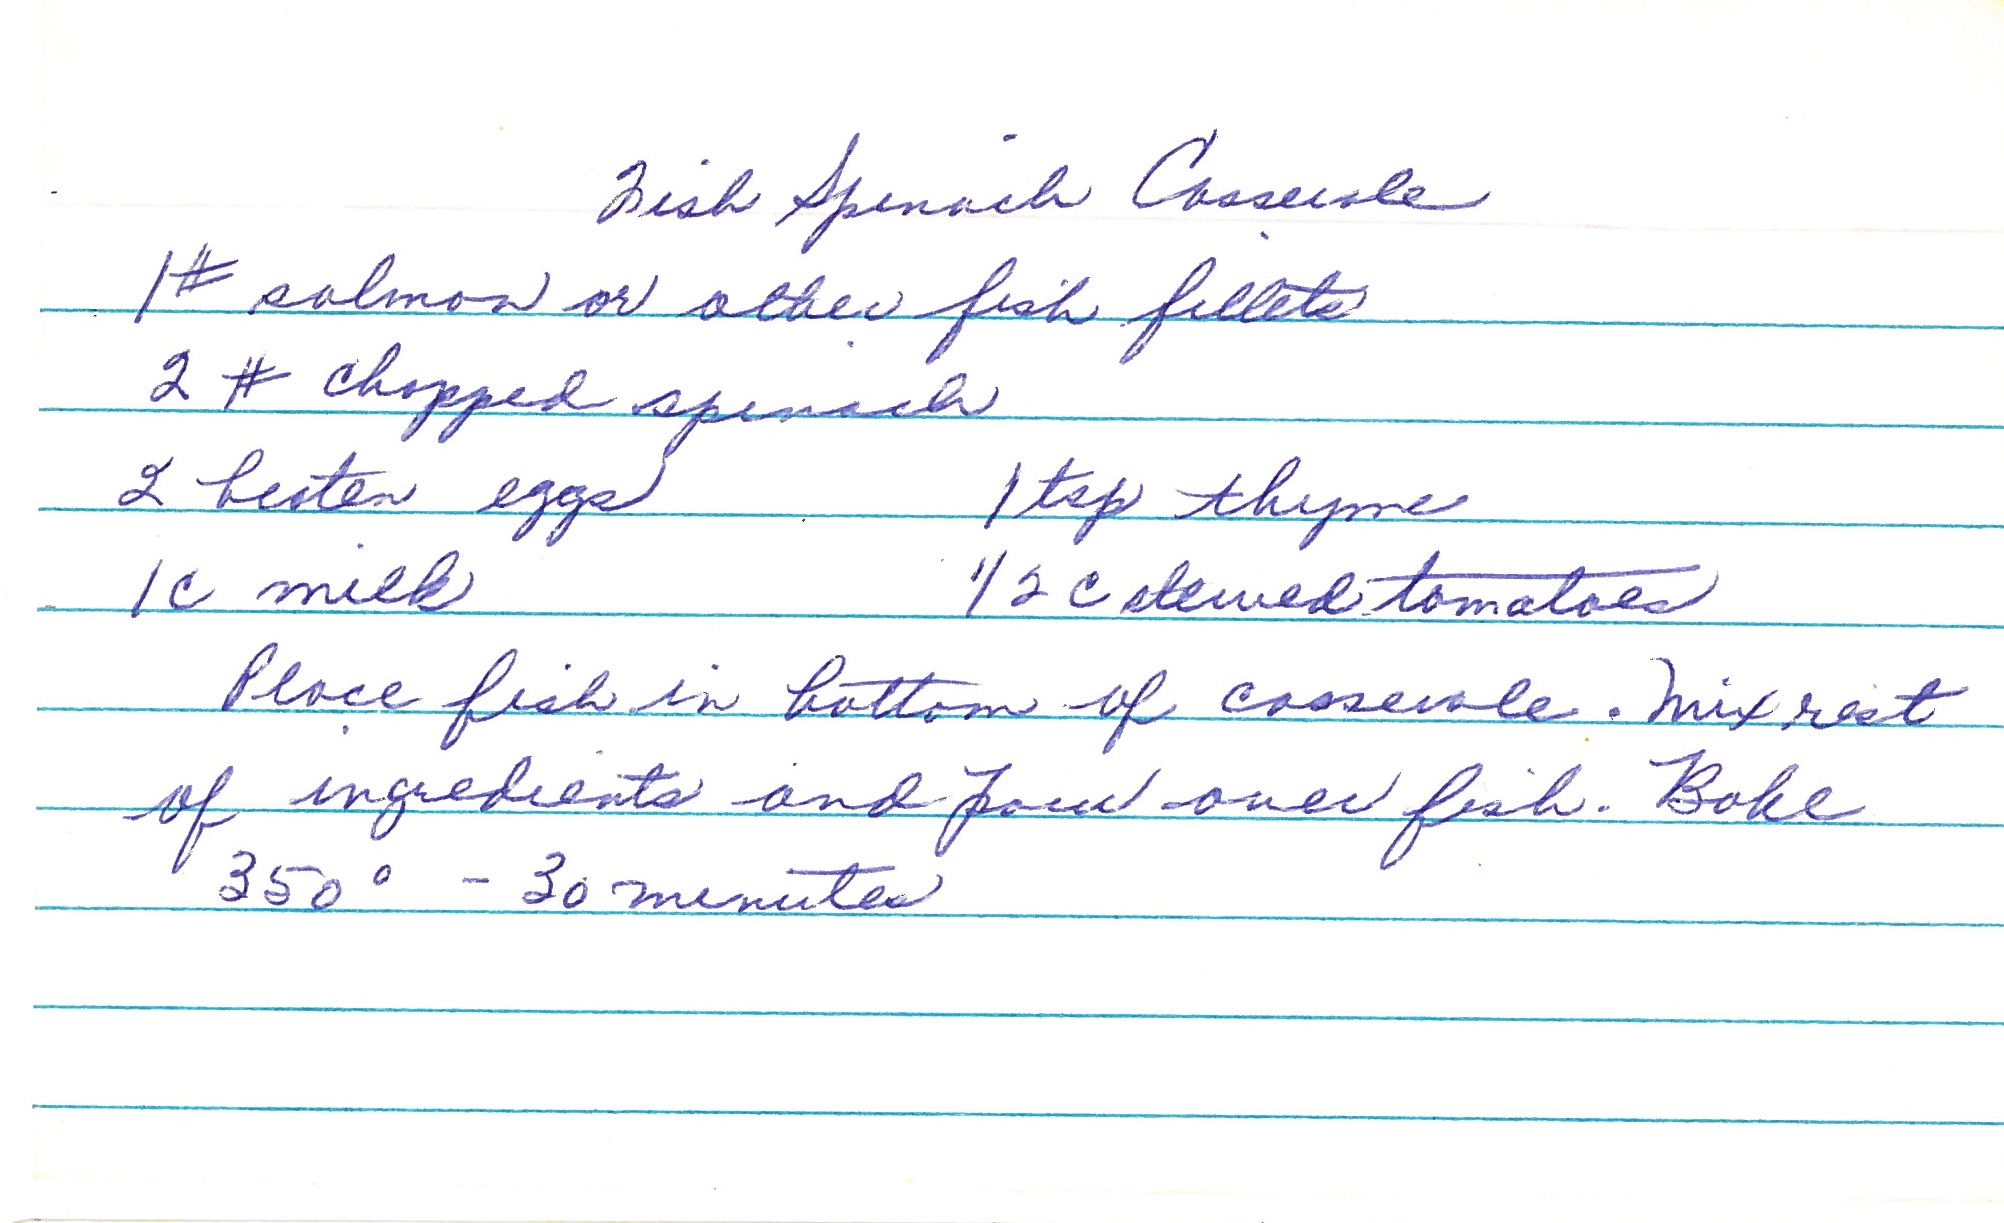 Fish Spinach Casserole
1# salmon or other fish fillets
2 # chopped spinach
2 beaten eggs 1 tsp thyme
1 c milk 1/2 c stewed tomatoes
Place fish in bottom of casserole. Mix rest
of ingredients and pour over fish. Bake
350° - 30 minutes